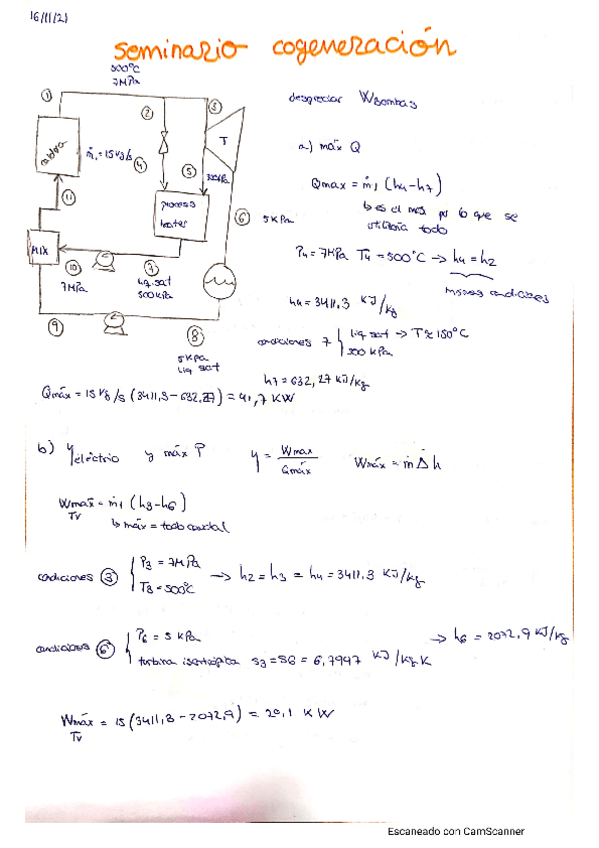 16/11/21
seminario cogeneración
500ºC
7MPa
①
②
③
T
caldera
ṁ₁ = 15 kg/s
④
⑤
500kPa
process
heater
⑥
5 kPa
⑪
MIX
⑩
7MPa
⑦
liq. sat
500 kPa
⑨
⑧
5 kPa
liq sat
despreciar Wbombas
a) máx Q
Qmax = ṁ₁ (h4 - h7)
↳ es el más por lo que se
utilizaría todo
P4 = 7MPa T4 = 500°C → h4 = h2
mismas condiciones
h4 = 3411,3 KJ/kg
condiciones 7 { liq sat → T ≈ 150°C
500 kPa
h7 = 632,27 KJ/kg
Qmáx = 15 kg/s (3411,3 - 632,27) = 41,7 KW
b) η eléctrico y máx P η = Wmax / Qmáx Wmáx = ṁ Δh
Wmáx = ṁ₁ (h3 - h6)
TV
↳ máx = todo caudal
condiciones ③ { P3 = 7MPa
T3 = 500ºC → h2 = h3 = h4 = 3411,3 KJ/kg
condiciones ⑥ { P6 = 5 kPa
turbina isentrópica s3 = s6 = 6,7997 KJ/kg K → h6 = 2072,9 KJ/kg
Wmáx = 15 (3411,3 - 2072,9) = 20,1 KW
TV
Escaneado con CamScanner